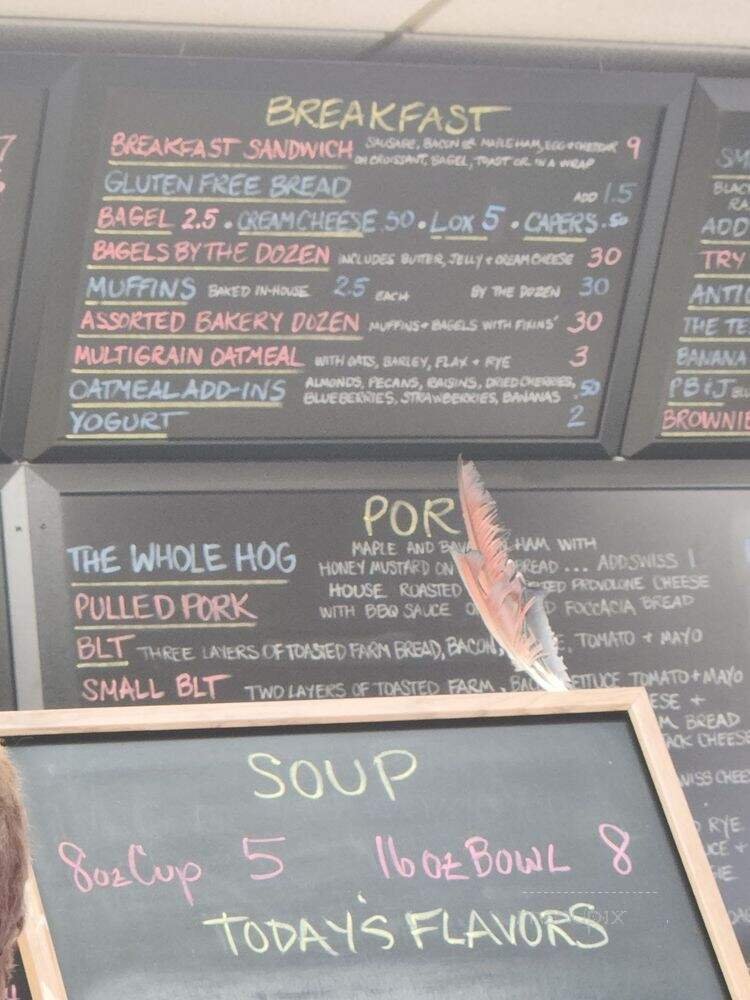 BREAKFAST
BREAKFAST SANDWICH SAUSAGE, BACON OR MAPLE HAM, EGG + CHEDDAR 9
ON CROISSANT, BAGEL, TOAST OR IN A WRAP
GLUTEN FREE BREAD ADD 1.5
BAGEL 2.5 • CREAM CHEESE .50 • LOX 5 • CAPERS .50
BAGELS BY THE DOZEN INCLUDES BUTTER, JELLY + CREAM CHEESE 30
MUFFINS BAKED IN-HOUSE 2.5 EACH BY THE DOZEN 30
ASSORTED BAKERY DOZEN MUFFINS + BAGELS WITH FIXINS' 30
MULTIGRAIN OATMEAL WITH OATS, BARLEY, FLAX + RYE 3
OATMEAL ADD-INS ALMONDS, PECANS, RAISINS, DRIED CHERRIES, .50
BLUEBERRIES, STRAWBERRIES, BANANAS
YOGURT 2
ADD
TRY
ANTI
THE TE
BANANA
PB & J
BROWNIE
POR
THE WHOLE HOG MAPLE AND HAM WITH
HONEY MUSTARD ON BREAD ... ADD SWISS 1
PULLED PORK HOUSE ROASTED PROVOLONE CHEESE
WITH BBQ SAUCE FOCCACIA BREAD
BLT THREE LAYERS OF TOASTED FARM BREAD, BACON, TOMATO + MAYO
SMALL BLT TWO LAYERS OF TOASTED FARM TOMATO + MAYO
ESE +
M BREAD
ACK CHEESE
WISS CHEE
RYE
CE +
SOUP
8oz Cup 5 16 oz BOWL 8
TODAY'S FLAVORS